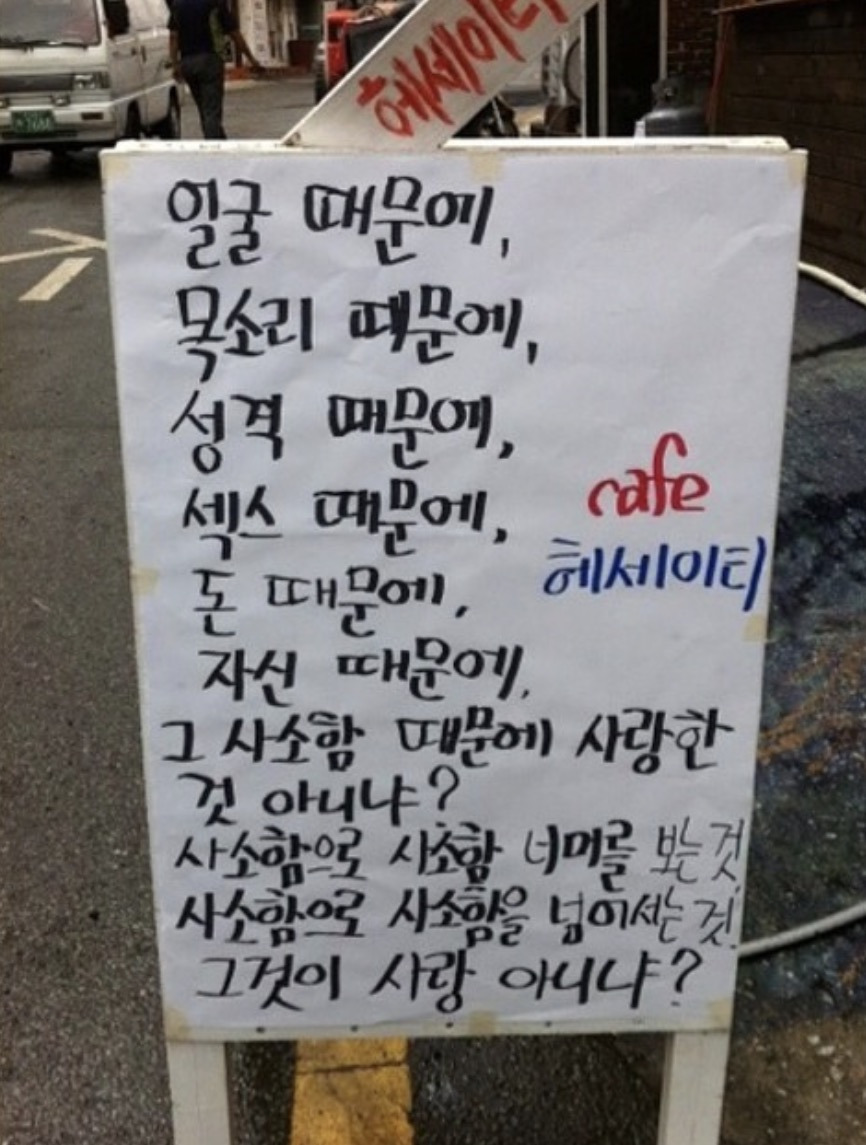 헤세이티
얼굴 때문에,
목소리 때문에,
성격 때문에,
섹스 때문에,
돈 때문에,
자신 때문에,
그 사소함 때문에 사랑한
것 아니냐?
사소함으로 사소함 너머를 보는 것,
사소함으로 사소함을 넘어서는 것,
그것이 사랑 아니냐?
cafe
헤세이티